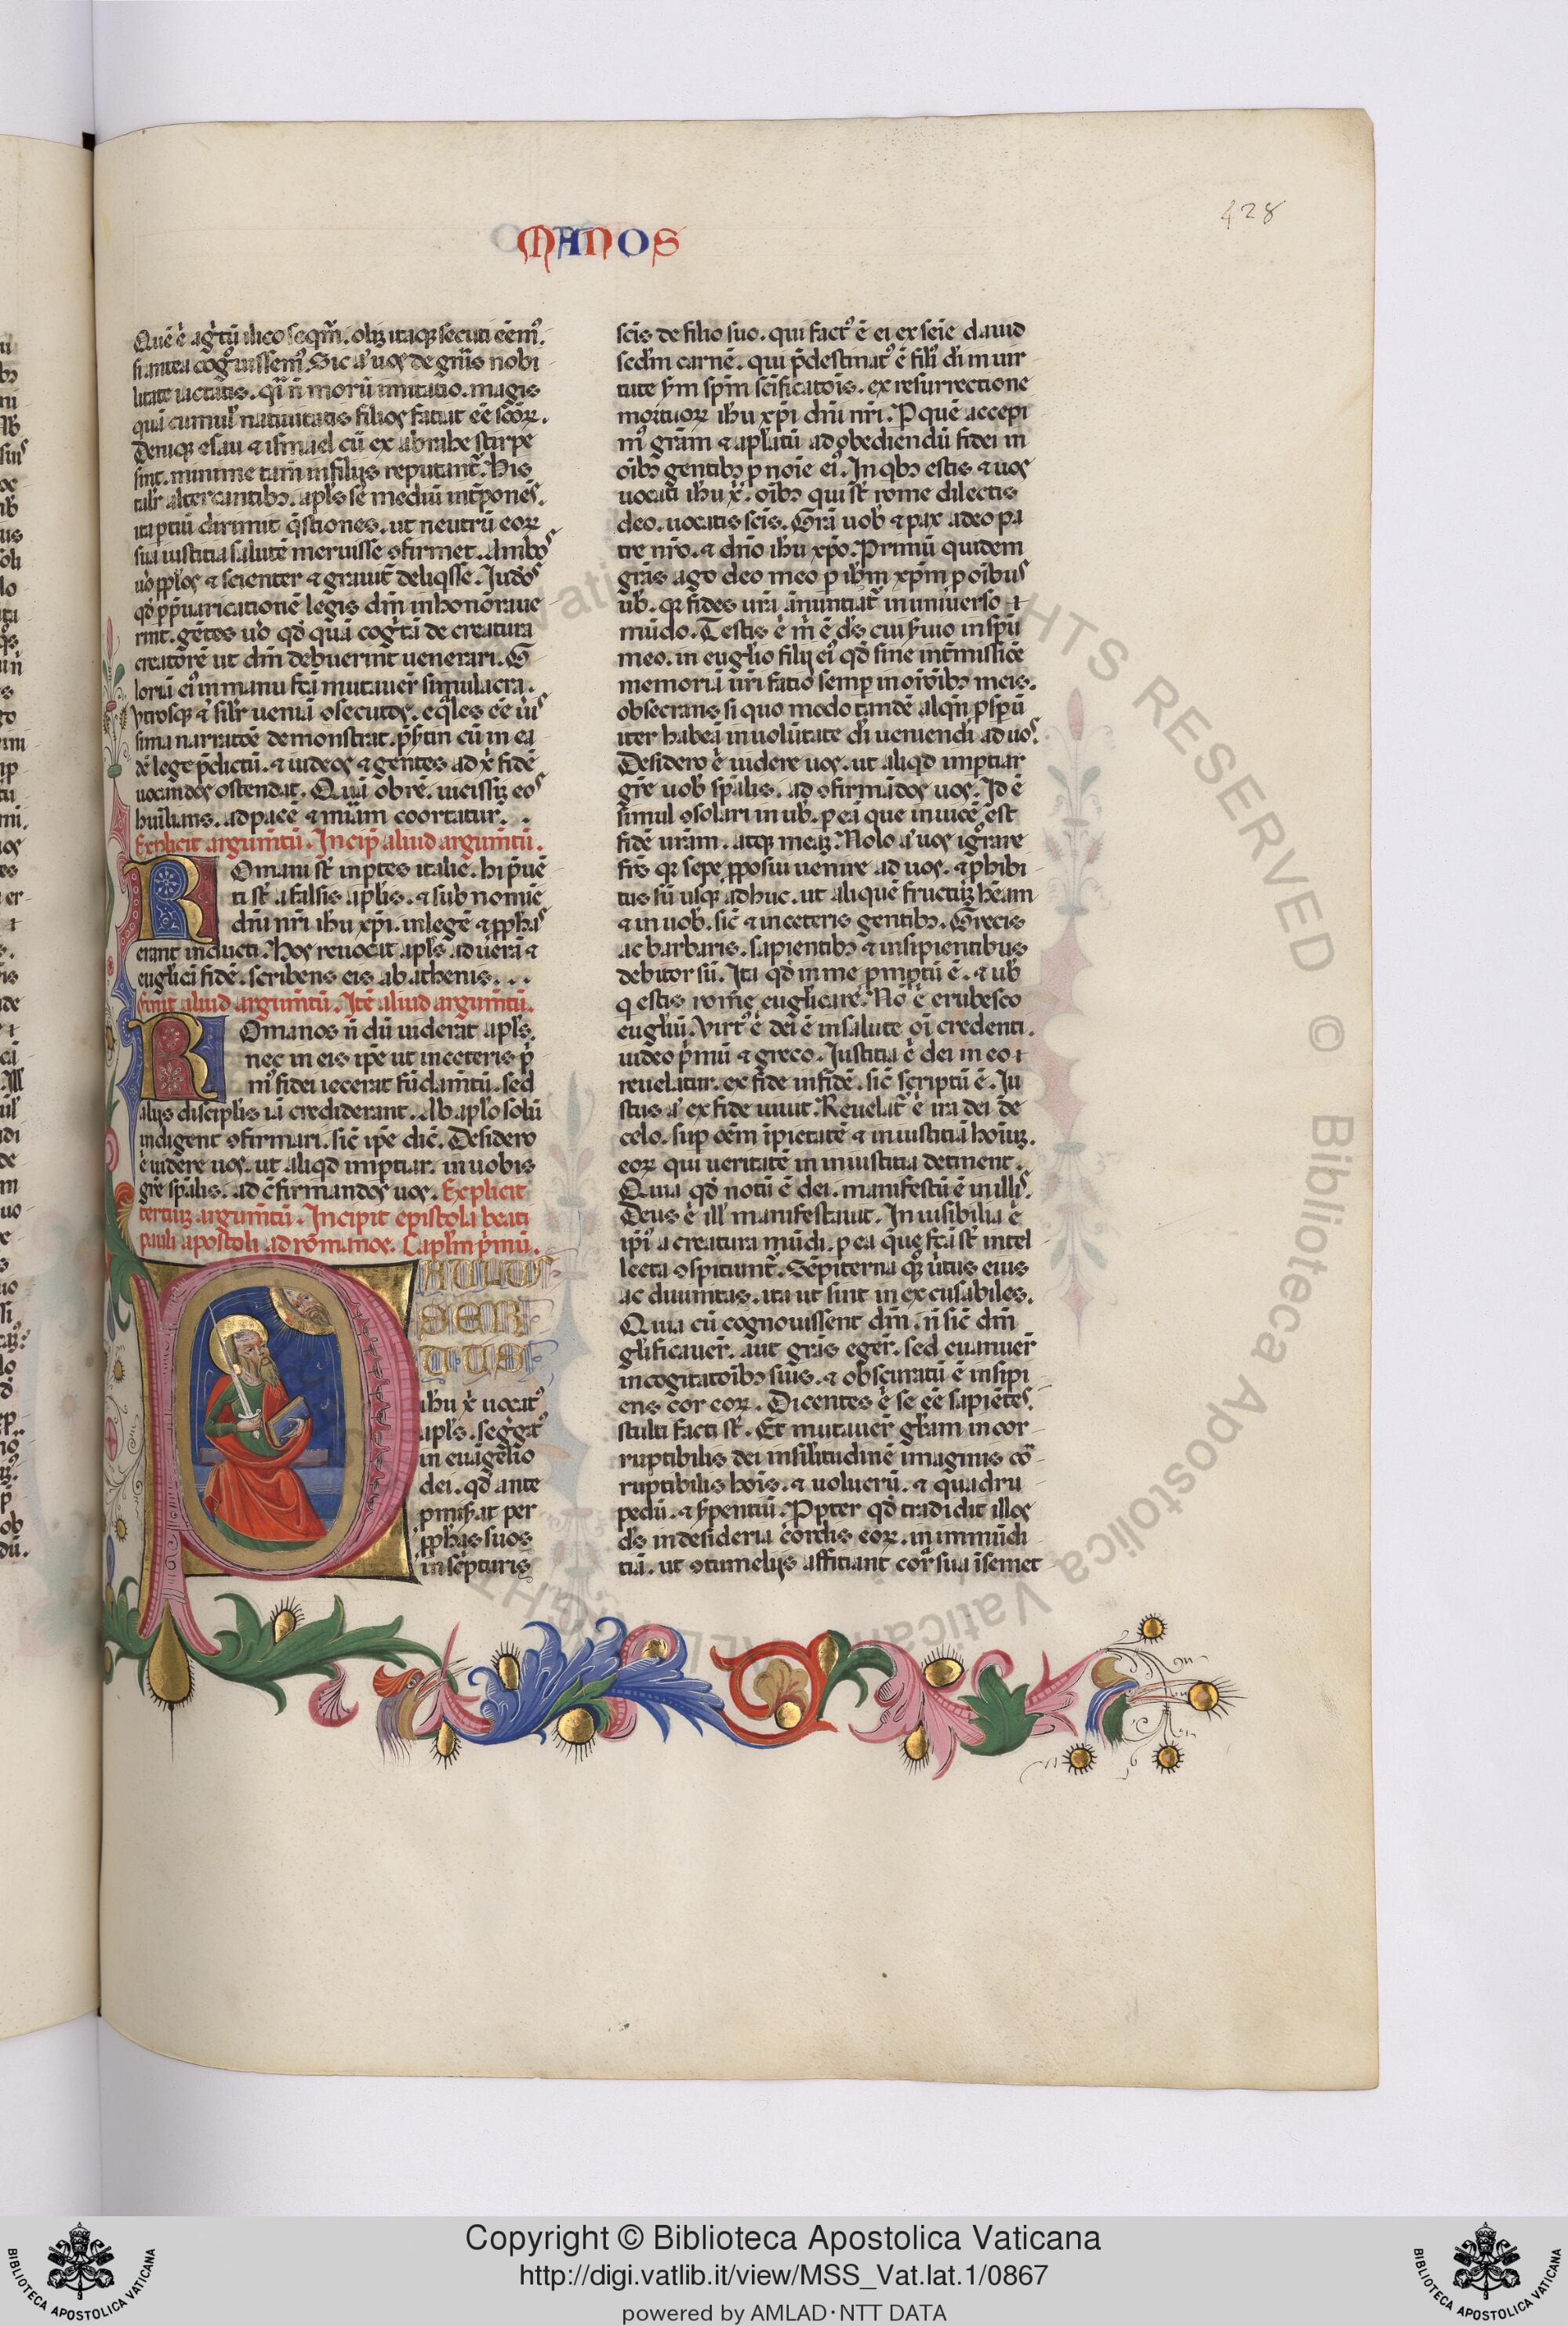 428
MANOS
Quē ē agītū ilico seqm̄. oliȝ itaqȝ secuti eēmꝰ.
si antea cogͦuissemꝰ. Sic aͥ uos de gn̄is nobi
litate iactatis. qͣi n̄ morū imitatio. magis
quā cumulꝰ natiuitatis filios faciat eē scōꝝ.
Deniqȝ esau ⁊ ismael cū ex abrahe stirpe
sint. minime tam̄ in filijs reputant᷑. His
talit᷑ altercantibȝ. apl̓s se mediū int̄ponēs.
ita ptiū dirimit q̄stiones. ut neutrū eoꝝ
sua iustitia salutē meruisse ꝯfirmet. Ambos
uͦo ppl̓os ⁊ scienter ⁊ grauit᷑ deliqsse. Iudeos
qd̓ p p̄uaricationē legis dm̄ inhonoraue
rint. gētes uͦo qd̓ quā cogͥtā de creatura
creatorē ut dm̄ debuerint uenerari. G
loriā eiꝰ in manu fc̄ā mutauer̄ simulacra.
Vtrosqȝ ē silr̓ ueniā ꝯsecutos. eq̄les eē ui
sima narratōe demonstrat. p̄s̓tim cū in ea
dē lege p̄dictū. ⁊ iudeos ⁊ gentes ad xͥ fidē
uocandos ostendat. Quā obrē. uicissiȝ eos
huilians. ad pacē ⁊ ꝯcordiam coortatur..
Explicit argum̄tū. Incip̄ aliud argum̄tū.
ROmani st̄ inptes italie. hi p̄uē
ti st̄ a falsis aplis. ⁊ sub nomīe
dn̄i nr̄i ihu xp̄i. in legē ⁊ ꝓphas
erant inducti. Hos reuocat apl̓s ad uerā ⁊
euglicā fidē. scribens eis ab athenis...
Finit aliud argum̄tū. Itē aliud argum̄tū.
ROmanos n̄ dū uiderat apl̓s.
nec in eis ip̄e ut in ceteris p̄
mꝰ fidei iecerat fūdam̄tū. sed
alijs disciplis iā crediderant. Ab aplo solū
indigent ꝯfirmari. sic̄ ip̄e dic̄. Desidero
ē uidere uos. ut aliqd imp̄tiar. in uobis
gr̄e sp̄alis. ad cōfirmandos uos. Explicit
tertiuȝ argum̄tū. Incipit epistola beati
pauli apostoli ad romanos. Capl̓m p̄mū.
PAULUS
SER
UUS
ihu xͥ uocatꝰ
apl̓s. seg̓gatꝰ
in euāgelio
dei. qd̓ ante
pmis̓at per
ꝓphas suos
in sc̓pturis
sc̄is de filio suo. qui fact̓ ē ei ex sēie dauid
sedm̄ carnē. qui p̄destinatꝰ ē filiꝰ di in uir
tute s̓m sp̄m sc̄ificatōis. ex resurrectione
mortuoꝝ ihu xp̄i dn̄i nr̄i. P quē accepi
mꝰ gr̄am ⁊ apl̓atū ad obediendū fidei in
oībȝ gentibȝ p noīe eiꝰ. In qbȝ estis ⁊ uos
uocati ihu xͥ. oībȝ qui st̄ rome dilectis
deo. uocatis sc̄is. Grā uob̓ ⁊ pax a deo pa
tre nr̄o. ⁊ dn̄o ihu xp̄o. Primū quidem
grās ago deo meo p ihm xp̄m p oībus
ub̓. qȝ fides ur̄a ānuntiat᷑ in uniuerso
mūdo. Testis ē m̄ ē ds̓ cui s̓uio in spū
meo. in euglio filij eiꝰ qd̓ sine int̄missiōe
memoriā ur̄i fatio semp in orōibȝ meis.
obsecrans si quo modo tandē alqn̄ ꝓspū
iter habeā in uolūtate di ueniendi ad uos.
Desidero ē uidere uos. ut aliqd imp̄tiar
gr̄e uob̓ sp̄alis. ad ꝯfirmādos uos. Id ē
simul ꝯsolari in ub̓. p eā que inuicē est
fidē ur̄am. atqȝ meaȝ. Nolo aͥ uos igͦrare
fr̄s qȝ sepe ꝓposui uenire ad uos. ⁊ phibi
tus sū usqȝ adhuc. ut aliquē fructuȝ hēam
⁊ in uob̓. sic̄ ⁊ in ceteris gentibȝ. Grecis
ac barbaris. sapientibȝ ⁊ insipientibus
debitor sū. Ita qd̓ in me pmptū ē. ⁊ ub̓
q estis rome euglicare. Nō ē erubesco
euglīu. Virtꝰ ē dei ē in salutē oī credenti.
iudeo p̄mū ⁊ greco. Iustitia ē dei in eo
reuelatur. ex fide in fidē. sic̄ scriptū ē. Iu
stus aͥ ex fide uiuit. Reuelat᷑ ē ira dei de
celo. sup oēm ipietatē ⁊ iniustitiā hoiuȝ.
eoꝝ qui ueritatē in iniustitia detinent.
Quia qd̓ notū ē dei. manifestū ē in illis.
Deus ē ill̓ manifestauit. Inuisibilia ē
ipiꝰ a creatura mūdi. p ea que fc̄ā st̄ intel
lecta ꝯspitiunt᷑. Sēpiterna qȝ uͥtus eius
ac diuinitas. ita ut sint inexcusabiles.
Quia cū cognouissent dm̄. n̄ sic̄ dm̄
gl̓ificauer̄. aut grās eger̄. sed euanuer̄
in cogitatōibȝ suis. ⁊ obscuratū ē insipi
ens cor eoꝝ. Dicentes ē se eē sapiētes.
stulti facti st̄. Et mutauer̄ gl̓iam incor
ruptibilis dei in silitudinē imaginis cor
ruptibilis hoīs. ⁊ uolucrū. ⁊ quadru
pedū. ⁊ s̓pentiū. Ppter qd̓ tradidit illos
ds̓ in desideria cordis eoꝝ. in immūdi
tiā. ut ꝯtumelijs affitiant corp̄a sua ī semet
Copyright © Biblioteca Apostolica Vaticana
http://digi.vatlib.it/view/MSS_Vat.lat.1/0867
powered by AMLAD·NTT DATA
BIBLIOTECA APOSTOLICA VATICANA
BIBLIOTECA APOSTOLICA VATICANA